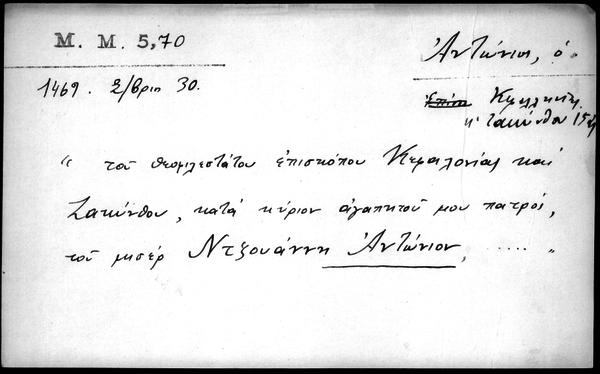 M. M. 5,70
Ἀντώνιος, ὁ
1469. Σ/βριου 30.
κ' Ζακύνθου
" τοῦ θεοφιλεστάτου ἐπισκόπου Κεφαλονίας καὶ
Ζακύνθου, κατὰ κύριον ἀγαπητοῦ μου πατρός,
τοῦ μισὲρ Ντζουάννη Ἀντώνιον, ..... "